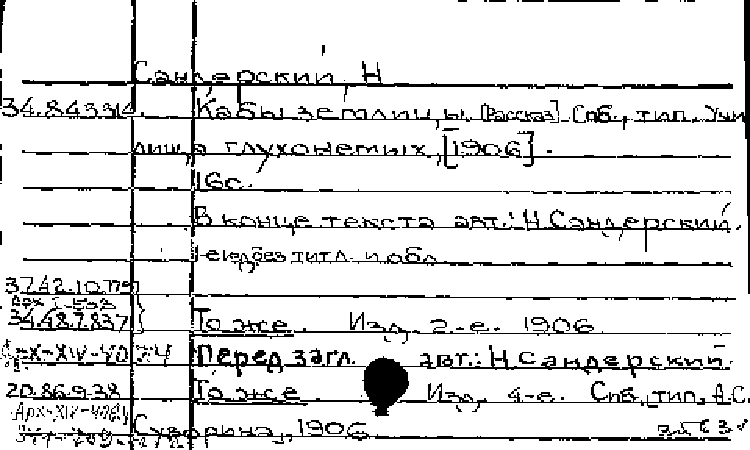 Сандерский, Н
34.84.3314. Кабы землицы. [Рассказ]. Спб., тип. Учи
лища глухонемых, [1906].
16с.
В конце текста авт.: Н.Сандерский.
без титл. и обл.
37.42.10.779
Арх
34.48.7.837} То же. Изд. 2-е. 1906.
Арх-XIV- Перед загл. авт.: Н.Сандерский.
20.86.9.38 То же. Изд. 4-е. Спб., тип. А.С.
Арх-XIV-
Суворина, 1906